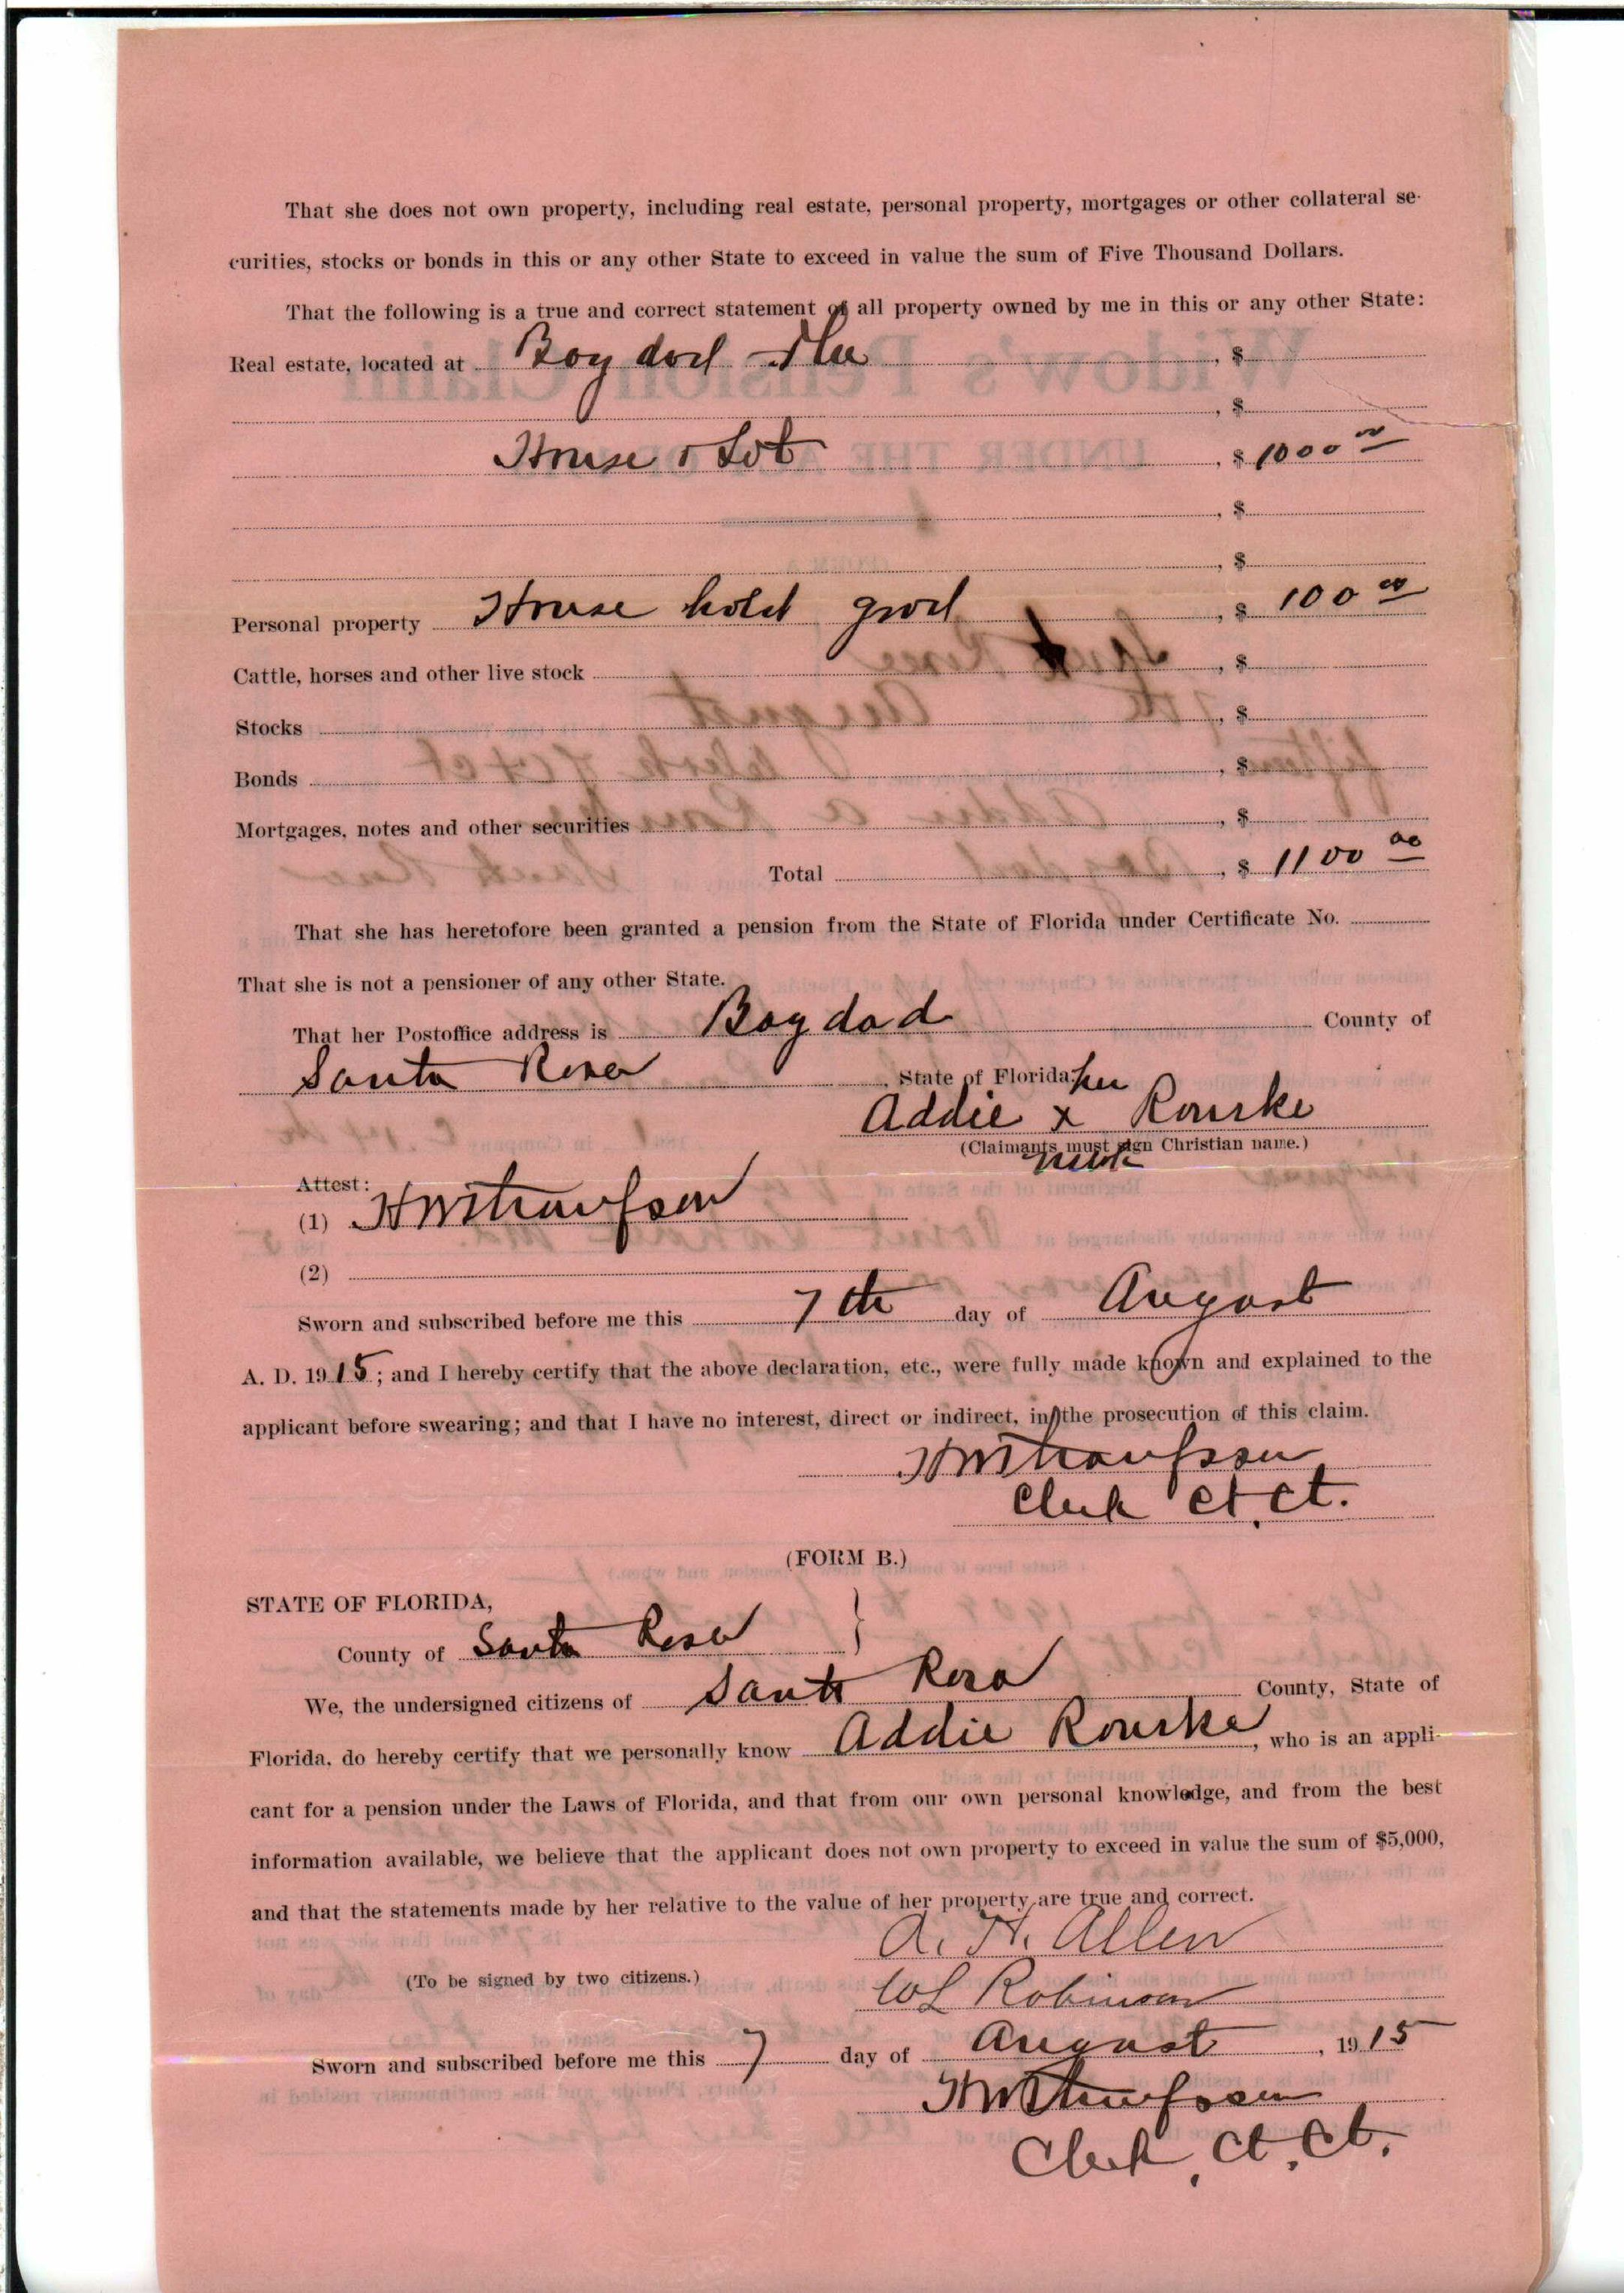 That she does not own property, including real estate, personal property, mortgages or other collateral se-
curities, stocks or bonds in this or any other State to exceed in value the sum of Five Thousand Dollars.
That the following is a true and correct statement of all property owned by me in this or any other State:
Real estate, located at Bagdad Fla , $
, $
House & Lot , $ 1000 00
, $
, $
Personal property House hold good , $ 100 00
Cattle, horses and other live stock , $
Stocks , $
Bonds , $
Mortgages, notes and other securities , $
Total , $ 1100 00
That she has heretofore been granted a pension from the State of Florida under Certificate No.
That she is not a pensioner of any other State.
That her Postoffice address is Bagdad County of
Santa Rosa , State of Florida. her
Addie x Rourke
(Claimants must sign Christian name.)
mark
Attest:
(1) HW Thompson
(2)
Sworn and subscribed before me this 7th day of August
A. D. 1915; and I hereby certify that the above declaration, etc., were fully made known and explained to the
applicant before swearing; and that I have no interest, direct or indirect, in the prosecution of this claim.
HW Thompson
Clerk Ct. Ct.
(FORM B.)
STATE OF FLORIDA,
County of Santa Rosa }
We, the undersigned citizens of Santa Rosa County, State of
Florida, do hereby certify that we personally know Addie Rourke, who is an appli-
cant for a pension under the Laws of Florida, and that from our own personal knowledge, and from the best
information available, we believe that the applicant does not own property to exceed in value the sum of $5,000,
and that the statements made by her relative to the value of her property are true and correct.
A. H. Allen
(To be signed by two citizens.)
WL Robinson
Sworn and subscribed before me this 7 day of August , 1915
HW Thompson
Clerk. Ct. Ct.